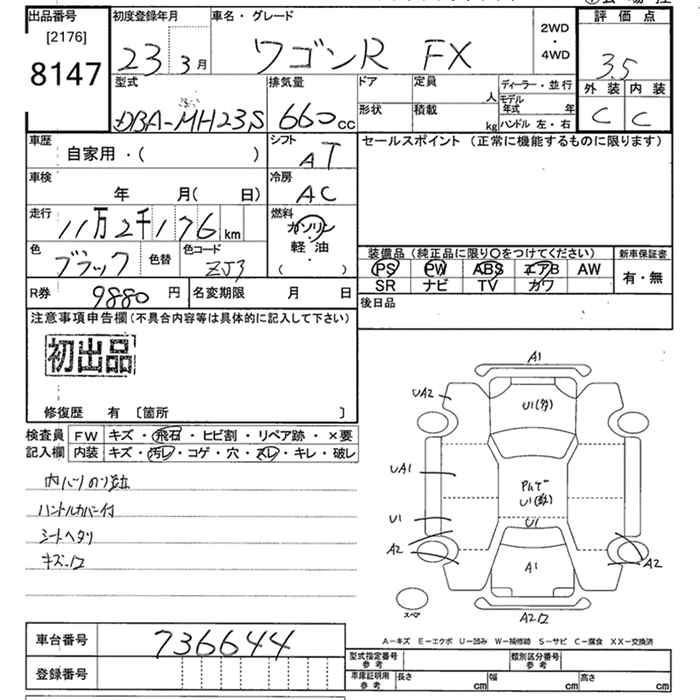 出品番号
[2176]
8147
初度登録年月
23 3月
車名・グレード
ワゴンR FX
2WD
・
4WD
評価点
3.5
外装 内装
C C
型式
DBA-MH23S
排気量
660cc
ドア
定員
人
形状
積載
kg
ディーラー・並行
モデル年式 年
ハンドル 左・右
車歴
自家用・( )
シフト
AT
セールスポイント (正常に機能するものに限ります)
車検
年 月( 日)
冷房
AC
走行
11万2千176km
燃料
ガソリン
軽・油
( )
色
ブラック
色替
色コード
ZJ3
装備品(純正品に限り○をつけてください)
PS PW ABS エアB AW
SR ナビ TV カワ
新車保証書
有・無
R券 9880円
名変期限 月 日
後日品
注意事項申告欄(不具合内容等は具体的に記入して下さい)
初出品
修復歴 有 〔箇所 〕
検査員
記入欄
FW キズ・飛石・ヒビ割・リペア跡・×要
内装 キズ・汚レ・コゲ・穴・スレ・キレ・破レ
ハンドルカバー付
シートヘタリ
A1
UA2
UA1
U1
U1
A2
A2
A1
スペア
車台番号
736644
登録番号
A－キズ E－エクボ U－凹み W－補修跡 S－サビ C－腐食 XX－交換済
型式指定番号
参考
類別区分番号
参考
車庫証明用
参考
長さ cm
幅 cm
高さ cm